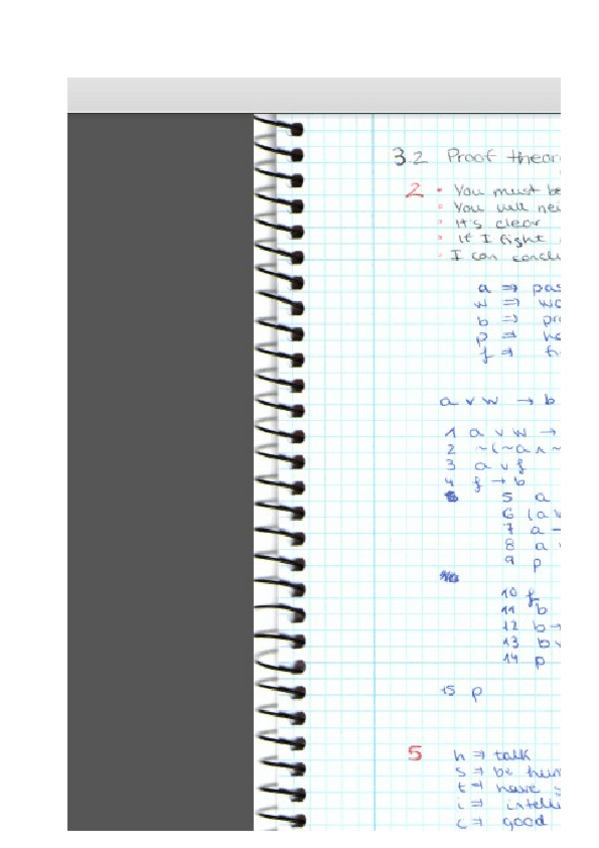 3.2 Proof theor
2 • You must be
• You will nei
• It's clear
• If I fight
• I can conclu
a ⇒ pas
w ⇒ wo
b ⇒ pr
p ⇒
f ⇒
a ∨ w → b
1 a ∨ w →
2 ~(~a ∧ ~
3 a ∨ f
4 f → b
5 a
6 (a ∨
7 a →
8 a
9 p
10 f
11 b
12 b →
13 b ∨
14 p
15 p
5 h ⇒ talk
s ⇒ be hum
t ⇒ have
i ⇒ intell
c ⇒ good